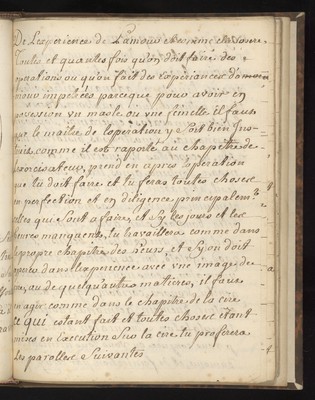 De Lexperience de Lamour et comme elle
Toutes et quantes fois qu'on doit faire des
operations ou qu'on fait des Experiances d'amour
nous impetrées parceque pour avoir en
possession un masle ou une femelle il faut
que le maitre de l'operation y soit bien Ins
truit comme il est raporté au chapitre de
, prend en apres l'operation
que tu doit faire et tu feras toutes choses
en perfection et en diligence principalem.t
celles qui sont a faire, et sy les jours et les
heures manquent, tu travaillera comme dans
le propre chapitre des heurs. et sy on doit
operer dans l'experience avec une image de
cire, ou de quelqu'autre matieres, il faut
en agir comme dans le chapitre de la cire
ce qui estant fait et toutes choses etant
mises en Execution sur la cire tu proferera
les parolles suivantes